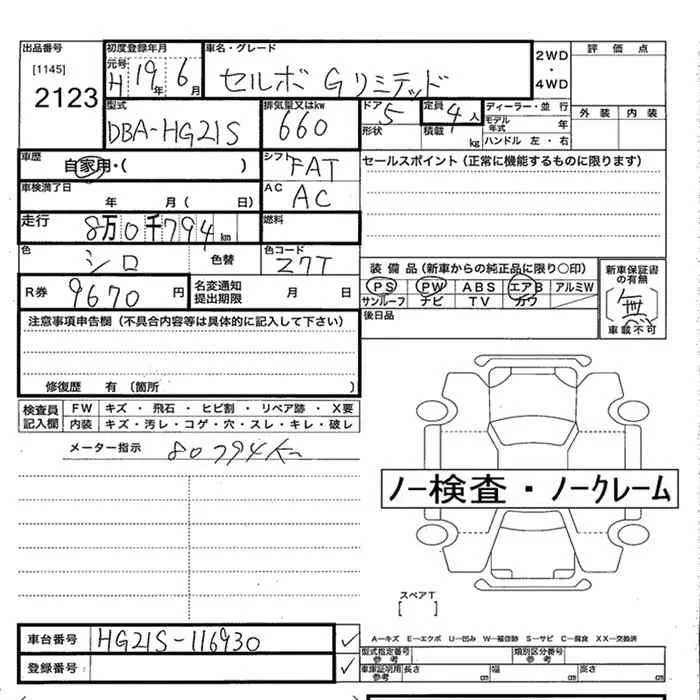 出品番号 初度登録年月 車名・グレード 2WD 評価点
[1145] 元号 H 19年 6月 セルボ Gリミテッド ・
2123 4WD
型式 排気量又はkw ドア 5 定員 4人 ディーラー・並行 外装 内装
DBA-HG21S 660 形状 積載 kg モデル年式 年
ハンドル 左・右
車歴 自家用・( ) シフト FAT セールスポイント(正常に機能するものに限ります)
車検満了日 年 月( 日) AC AC
走行 8万0千794km 燃料
色 シロ 色替 色コード Z7T
装備品(新車からの純正品に限り○印) 新車保証書の有無
R券 9670円 名変通知提出期限 月 日 PS PW ABS エアB アルミW 無
サンルーフ ナビ TV カワ 車載不可
注意事項申告欄(不具合内容等は具体的に記入して下さい) 後日品
修復歴 有(箇所 )
検査員記入欄 FW キズ・飛石・ヒビ割・リペア跡・X要
内装 キズ・汚レ・コゲ・穴・スレ・キレ・破レ
メーター指示 80794K
ノー検査・ノークレーム
スペアT
[ ]
車台番号 HG21S-116930 ✓ A―キズ E―エクボ U―凹み W―補修跡 S―サビ C―腐食 XX―交換済
型式指定番号 参考 類別区分番号 参考
登録番号 ✓ 車庫証明用参考 長さ cm 幅 cm 高さ cm